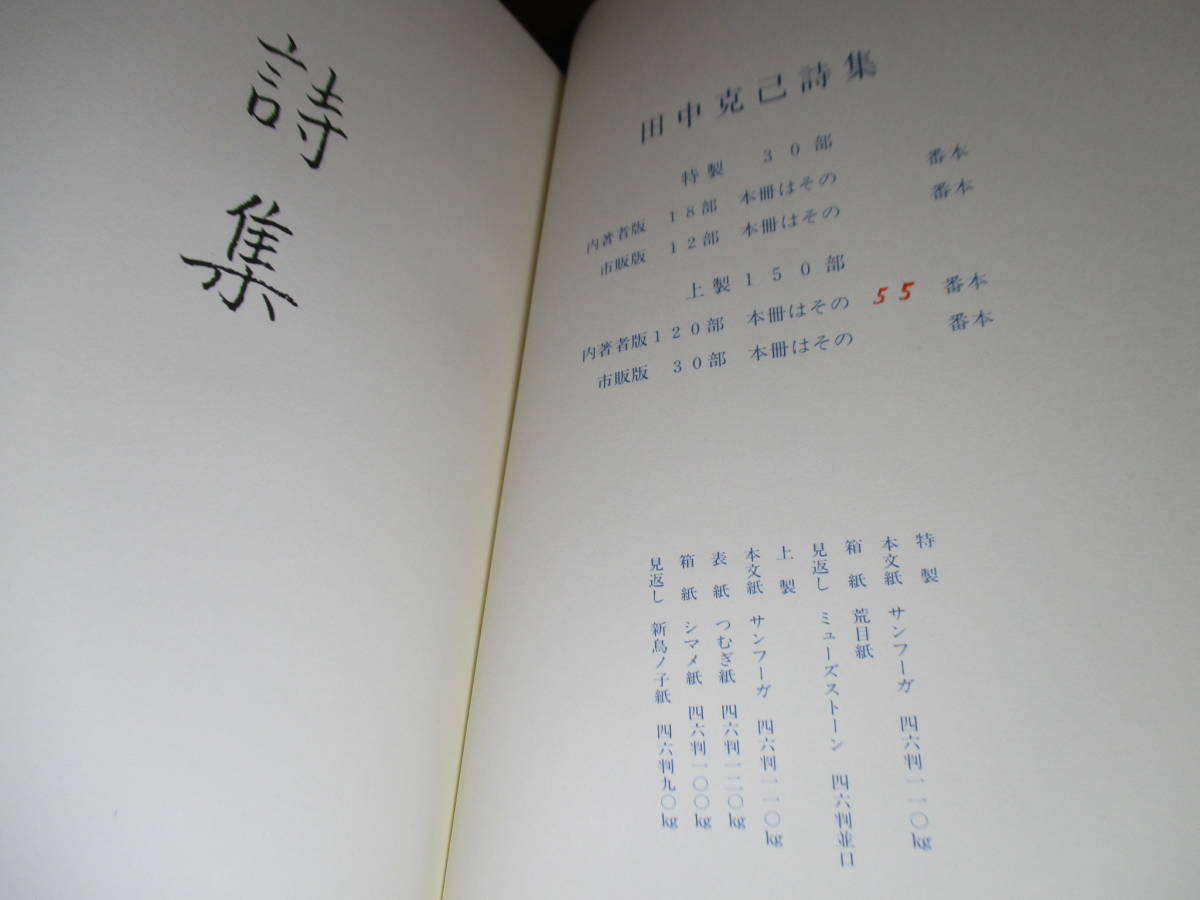 詩集
田中克己詩集
特製 30部
内著者版 18部 本冊はその 番本
市販版 12部 本冊はその 番本
上製150部
内著者版120部 本冊はその 55 番本
市販版 30部 本冊はその 番本
特製
本文紙 サンフーガ 四六判一一〇kg
箱紙 荒目紙
見返し ミューズストーン 四六判並口
上製
本文紙 サンフーガ 四六判一一〇kg
表紙 つむぎ紙 四六判一二〇kg
箱紙 シマメ紙 四六判一〇〇kg
見返し 新鳥ノ子紙 四六判九〇kg